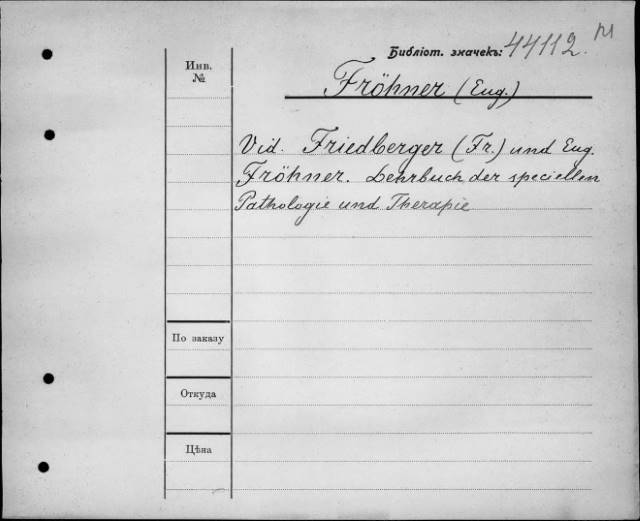 Библіот. значекъ: 44112.
Инв.
№
Fröhner (Eug.)
Vid. Friedberger (Fr.) und Eug.
Fröhner. Lehrbuch der speciellen
Pathologie und Therapie
По заказу
Откуда
Цѣна